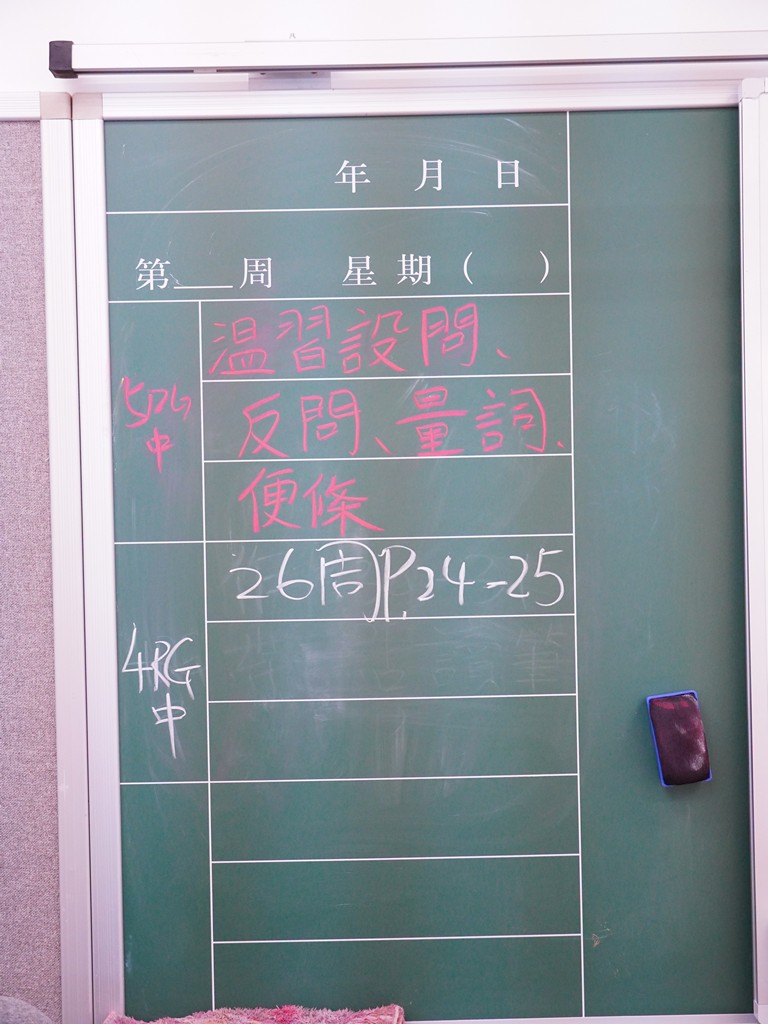 年 月 日
第___周 星期( )
温習設問、
反問、量詞、
便條
5DG
中
26周P.24-25
4RG
中